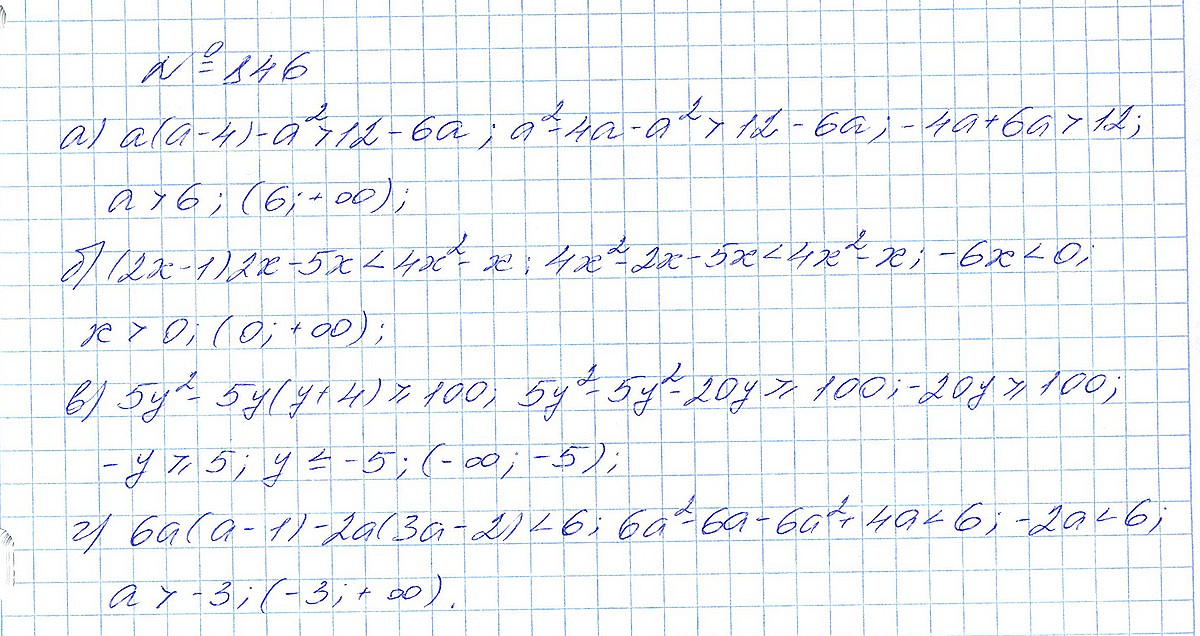 № 846
а) a(a-4)-a²>12-6a; a²-4a-a²>12-6a; -4a+6a>12;
a>6; (6;+∞);
б) (2x-1)2x-5x<4x²-x; 4x²-2x-5x<4x²-x; -6x<0;
x>0; (0;+∞);
в) 5y²-5y(y+4)⩾100; 5y²-5y²-20y⩾100; -20y⩾100;
-y⩾5; y≤-5; (-∞;-5);
г) 6a(a-1)-2a(3a-2)<6; 6a²-6a-6a²+4a<6; -2a<6;
a>-3; (-3;+∞).